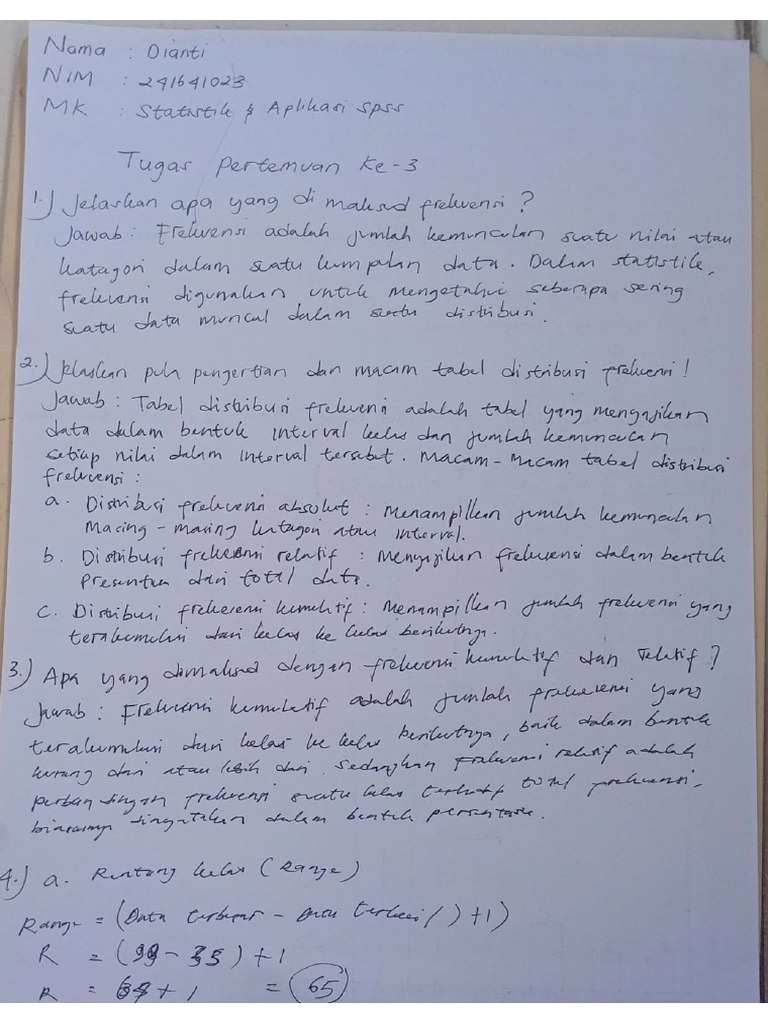 Nama : Dianti
NIM : 241641023
MK : Statistik & Aplikasi SPSS
Tugas Pertemuan Ke-3
1.) Jelaskan apa yang di maksud frekuensi ?
Jawab : Frekuensi adalah jumlah kemunculan suatu nilai atau
katagori dalam suatu kumpulan data. Dalam statistik,
frekuensi digunakan untuk mengetahui seberapa sering
suatu data muncul dalam suatu distribusi.
2.) Jelaskan pula pengertian dan macam tabel distribusi frekuensi !
Jawab : Tabel distribusi frekuensi adalah tabel yang mengajikan
data dalam bentuk interval kelas dan jumlah kemunculan
setiap nilai dalam interval tersebut. Macam-Macam tabel distribusi
frekuensi :
a. Distribusi frekuensi absolut : Menampilkan jumlah kemunculan
Masing-masing katagori atau interval.
b. Distribusi frekuensi relatif : Menyajikan frekuensi dalam bentuk
Presentase dari total data.
c. Distribusi frekuensi kumulatif : Menampilkan jumlah frekuensi yang
terakumulasi dari kelas ke kelas berikutnya.
3.) Apa yang dimaksud dengan frekuensi kumulatif dan relatif ?
Jawab : Frekuensi kumulatif adalah jumlah frekuensi yang
terakumulasi dari kelas ke kelas berikutnya, baik dalam bentuk
kurang dari atau lebih dari. Sedangkan frekuensi relatif adalah
perbandingan frekuensi suatu kelas terhadap total frekuensi,
biasanya dinyatakan dalam bentuk persentase.
4.) a. Rentang kelas (Range)
Range = (Data terbesar - Data terkecil) +1)
R = (99 - 35) + 1
R = 64 + 1 = 65